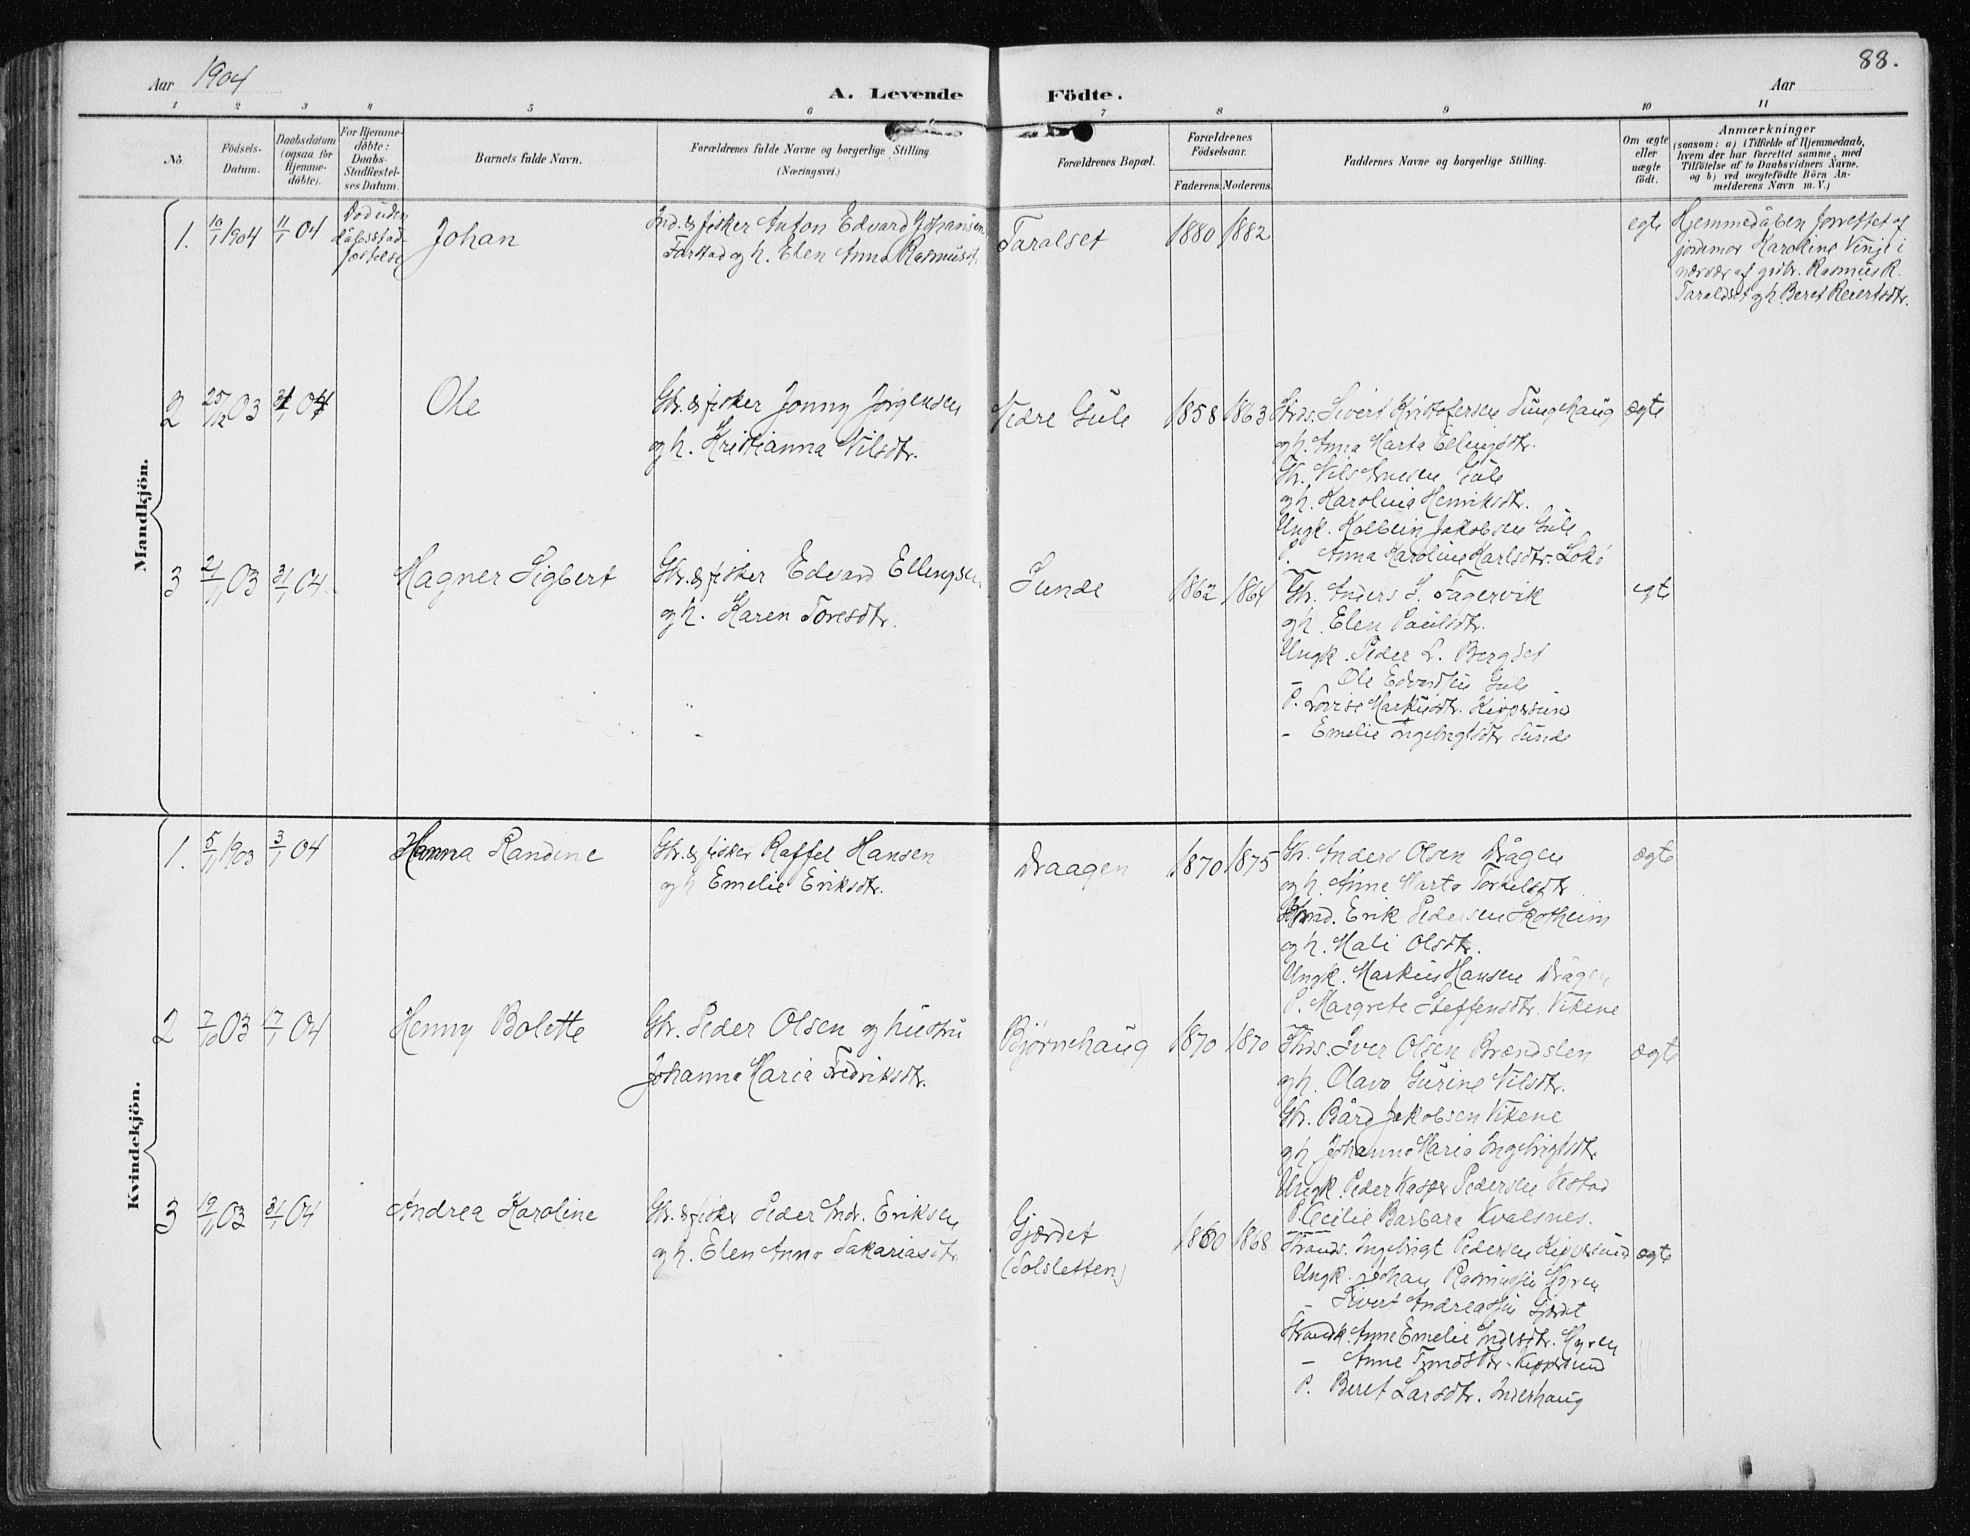 Aar 1904
A. Levende Födte.
Aar
88.
1 2 3 4 5 6 7 8 9 10 11
No.
Födsels-Datum.
Daabsdatum (ogsaa for Hjemmedöbte).
For Hjemmedöbte: Daabs-Stadfæstelses Datum.
Barnets fulde Navn.
Forældrenes fulde Navne og borgerlige Stilling. (Næringsvei.)
Forældrenes Bopæl.
Forældrenes Födselsaar.
Faderens. Moderens.
Faddernes Navne og borgerlige Stilling.
Om ægte eller uægte födt.
Anmærkninger
(saasom: a) i Tilfælde af Hjemmedaab, hvem der har forrettet samme, med Tilföielse af to Daabsvidners Navne. og b) ved uægtefödte Börn Anmelderens Navn m. V.)
Mandkjön.
1. 10/1 1904 11/1 04
Död uden dåbsstadfæstelse
Johan
Ind. & fisker Anton Edvard Johansen
Farstad og h. Elen Anna Rasmusdt.
Taralset
1880 1882
egte
Hjemmedåben forrettet af
jordmor Karoline Venge i
nærvær af gbr. Rasmus R.
Taraldset og h. Beret Reiertsdtr.
2 25/12 03 31/1 04
Ole
Gbr. & fisker Jonny Jörgensen
og h. Kristianna Nilsdtr.
Nedre Gule
1858 1863
Strds. Sivert Kristofersen Tungehaug
og h. Anna Marta Ellingsdtr.
Gbr. Nils Arnesen Gule
og h. Karolina Henriksdtr.
Ungk. Kolbein Jakobsen Gule
P. Anna Karoline Karlsdtr. Lokö
ægte
3 21/11 03 31/1 04
Magner Sigbert
Gbr. & fisker Edvard Ellingsen
og h. Karen Toresdtr.
Sunde
1862 1864
Gbr. Anders S. Fagervik
og h. Elen Paulsdtr.
Ungk. Peder L. Bergset
– Ole Edvardsen Gule
P. Lovise Markusdtr. Kippersund
– Emelie Ingebrigtsdtr. Sunde
egte
Kvindekjön.
1. 5/11 1903 3/1 04
Hanna Randine
Gbr. & fisker Raffel Hansen
og h. Emelie Eriksdtr.
Draagen
1870 1875
Gbr. Anders Olsen Drågen
og h. Anne Marta Torkelsdtr.
Erik Pedersen Skotheim
og h. Mali Olsdtr.
Ungk. Markus Hansen Drågen
P. Margrete Steffensdtr. Vikene
ægte
2 7/10 03 17/1 04
Henny Bolette
Gbr. Peder Olsen og hustru
Johanna Maria Fredriksdtr.
Björnehaug
1870 1870
Strds. Iver Olsen Brændslen
og h. Olava Gurine Nilsdtr.
Gbr. Bård Jakobsen Vikene
og h. Johanna Maria Ingebrigtsdtr.
Ungk. Peder Kasper Pedersen Vestad
P. Cecilie Barbara Kvalsnes.
ægte
3 19/11 03 31/1 04
Andrea Karoline
Gbr. & fisker Peder Andr. Eriksen
og h. Elen Anna Sakariasdtr.
Gjærdet
(Solsletten)
1860 1868
Strands. Ingebrigt Pedersen Kippersund
Ungk. Johan Rasmussen Myren
– Sivert Andreassen Gjærdet
Strandk. Anne Emelie Myren
– Anne Kippersund
P. Beret Larsdtr. Inderhaug
ægte